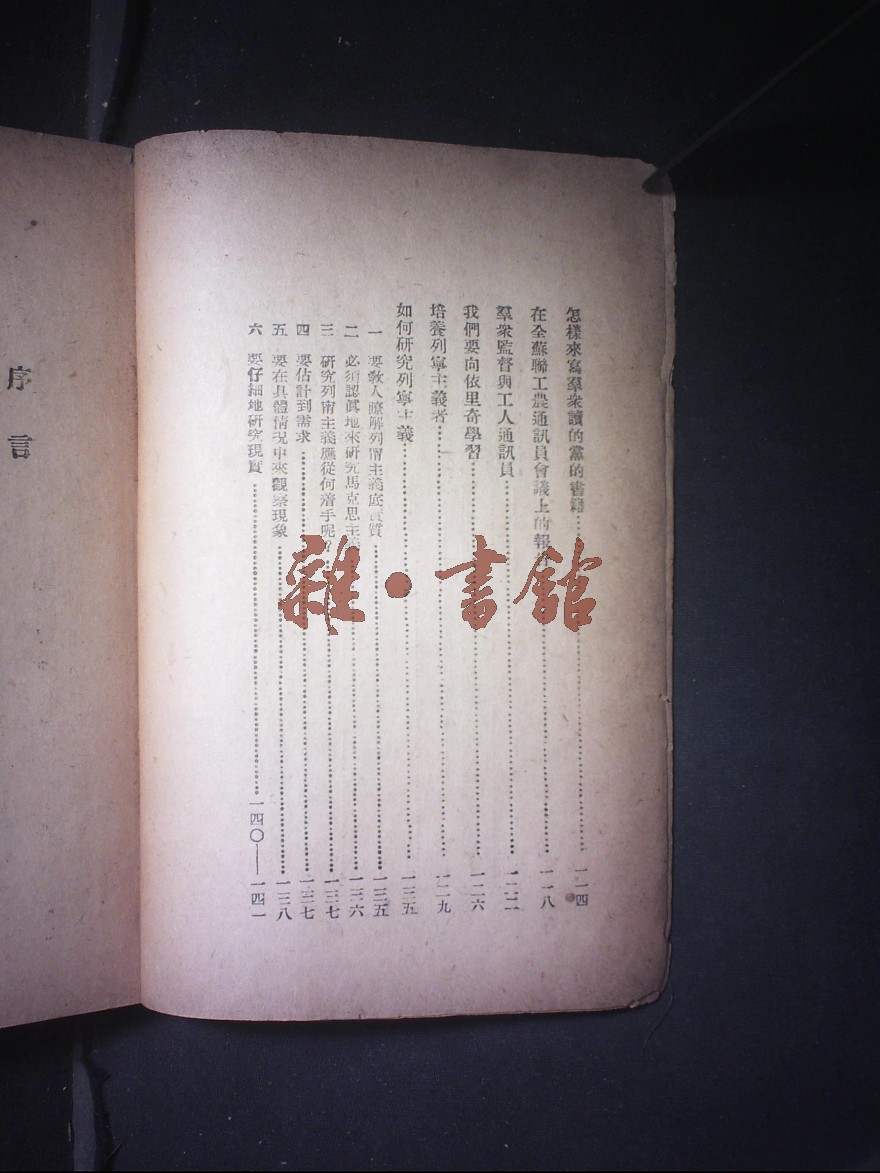 怎樣來寫羣衆讀的黨的書籍……一一四
在全蘇聯工農通訊員會議上的報告……一一八
羣衆監督與工人通訊員……一二二
我們要向依里奇學習……一二六
培養列寧主義者……一二九
如何研究列寧主義……一三五
一 要教人瞭解列甯主義底實質……一三五
二 必須認眞地來研究馬克思主義……一三六
三 研究列甯主義應從何着手呢？……一三七
四 要估計到需求……一三七
五 要在具體情況中來觀察現象……一三八
六 要仔細地研究現實……一四〇——一四一
序言
雜·書館